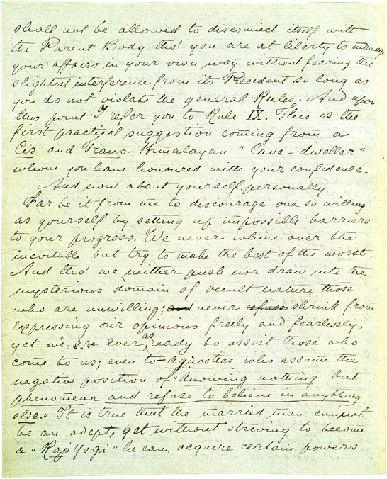 shall not be allowed to disconnect itself with
the Parent Body, tho' you are at liberty to manage
your affairs in your own way without fearing the
slightest interference from its President so long as
you do not violate the general Rules. And upon
this point I refer you to Rule IX. This is the
first practical suggestion coming from a
Cis and Trans-Himalayan "Cave-dweller"
whom you have honoured with your confidence.
And now about yourself personally.
Far be it from me to discourage one so willing
as yourself by setting up impossible barriers
to your progress. We never whine over the
inevitable but try to make the best of the worst.
And tho' we neither push nor draw into the
mysterious domain of occult nature those
who are unwilling; never shrink from
expressing our opinions freely and fearlessly,
yet we are ever as ready to assist those who
come to us; even to Agnostics who assume the
negative position of "knowing nothing but
phenomena and refuse to believe in anything
else." It is true that the married man cannot
be an adept, yet without striving to become
a "Raja Yogi" he can acquire certain powers